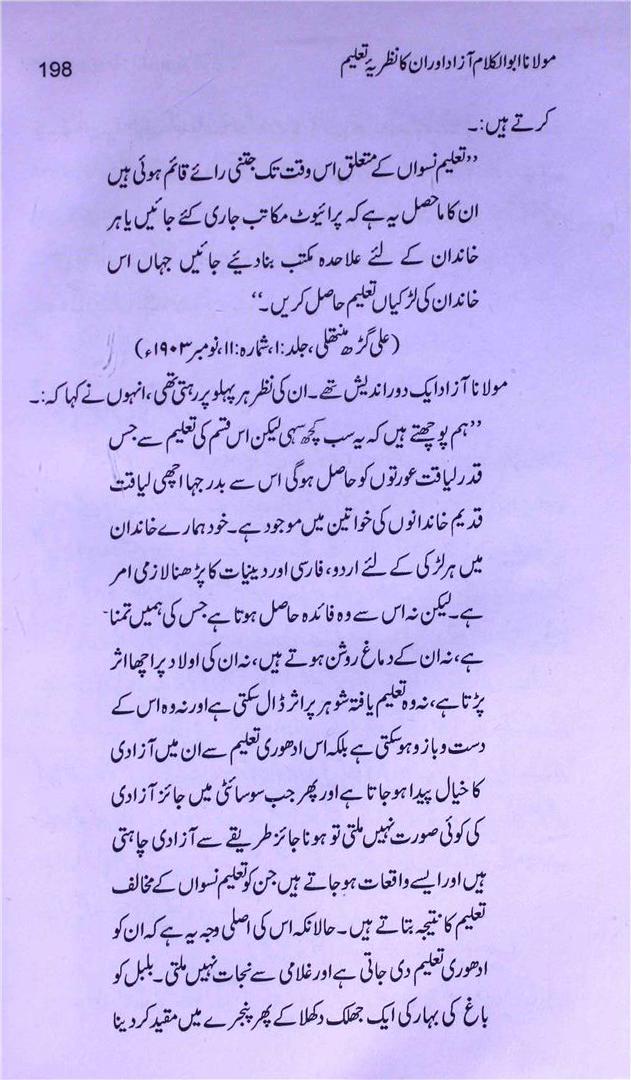 مولانا ابوالکلام آزاد اور ان کا نظریۂ تعلیم
198
کرتے ہیں:۔
”تعلیم نسواں کے متعلق اس وقت تک جتنی رائے قائم ہوئی ہیں
ان کا ماحصل یہ ہے کہ پرائیوٹ مکاتب جاری کئے جائیں یا ہر
خاندان کے لئے علاحدہ مکتب بنادیئے جائیں جہاں اس
خاندان کی لڑکیاں تعلیم حاصل کریں۔“
(علی گڑھ منتھلی، جلد:۱، شمارہ:۱۱، نومبر ۱۹۰۳ء)
مولانا آزاد ایک دور اندیش تھے۔ ان کی نظر ہر پہلو پر رہتی تھی، انہوں نے کہا کہ:۔
”ہم پوچھتے ہیں کہ یہ سب کچھ سہی لیکن اس قسم کی تعلیم سے جس
قدر لیاقت عورتوں کو حاصل ہوگی اس سے بدرجہا اچھی لیاقت
قدیم خاندانوں کی خواتین میں موجود ہے۔ خود ہمارے خاندان
میں ہر لڑکی کے لئے اردو، فارسی اور دینیات کا پڑھنا لازمی امر
ہے۔ لیکن نہ اس سے وہ فائدہ حاصل ہوتا ہے جس کی ہمیں تمنا
ہے، نہ ان کے دماغ روشن ہوتے ہیں، نہ ان کی اولاد پر اچھا اثر
پڑتا ہے، نہ وہ تعلیم یافتہ شوہر پر اثر ڈال سکتی ہے اور نہ وہ اس کے
دست و بازو ہوسکتی ہے بلکہ اس ادھوری تعلیم سے ان میں آزادی
کا خیال پیدا ہوجاتا ہے اور پھر جب سوسائٹی میں جائز آزادی
کی کوئی صورت نہیں ملتی تو ہونا جائز طریقے سے آزادی چاہتی
ہیں اور ایسے واقعات ہوجاتے ہیں جن کو تعلیم نسواں کے مخالف
تعلیم کا نتیجہ بتاتے ہیں۔ حالانکہ اس کی اصلی وجہ یہ ہے کہ ان کو
ادھوری تعلیم دی جاتی ہے اور غلامی سے نجات نہیں ملتی۔ بلبل کو
باغ کی بہار کی ایک جھلک دکھلا کے پھر پنجرے میں مقید کردینا